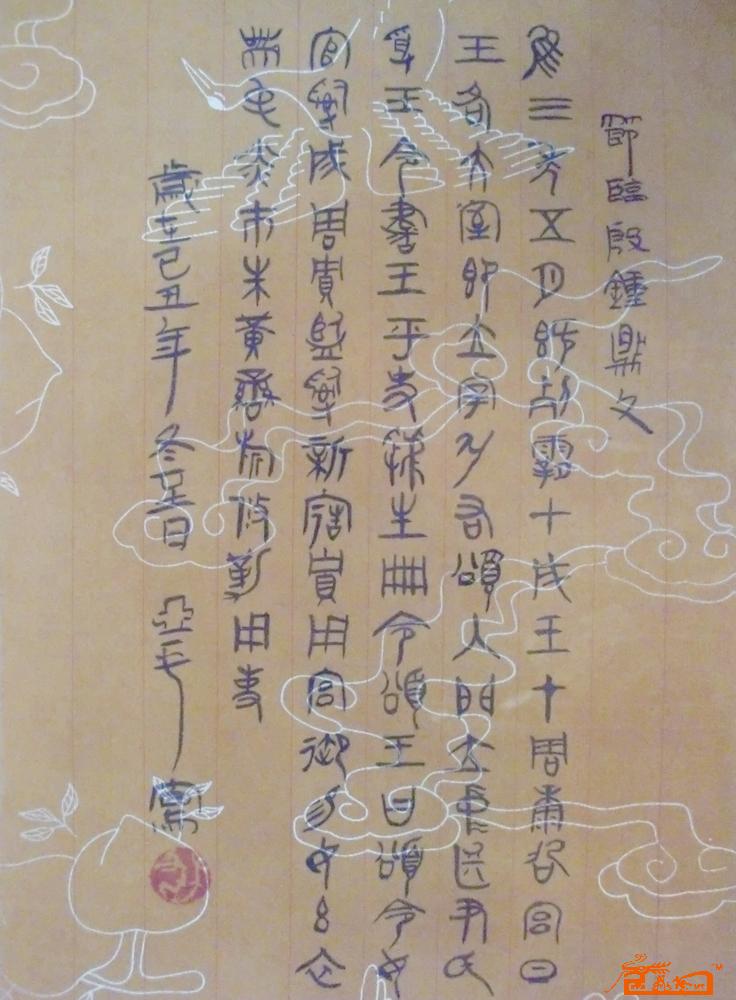 節臨殷鍾鼎文
隹三年五月既死霸甲戌王才周康卲宮旦
王各大室即立宰弘右頌入門立中廷尹氏
受王令書王乎史虢生冊令頌王曰頌令女
官𤔲成周貯監𤔲新造貯用宮御易女玄衣
黹屯赤市朱黃鑾旂攸勒用事
歲在己丑年冬至日 亞毛 寫